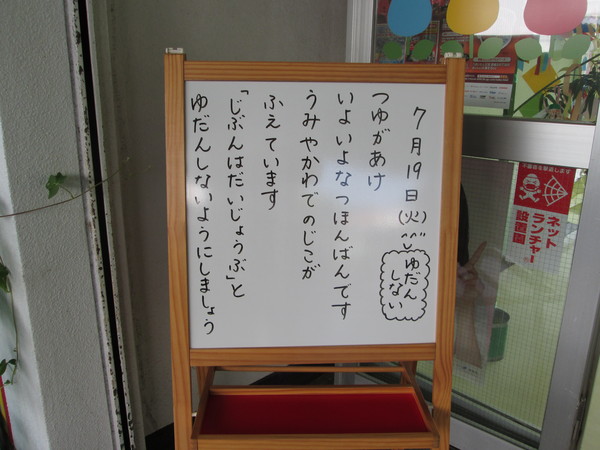 7月19日(火)
ゆだん
しない
つゆがあけ
いよいよなつほんばんです
うみやかわでのじこが
ふえています
「じぶんはだいじょうぶ」と
ゆだんしないようにしましょう
ネット
ランチャー
設置園